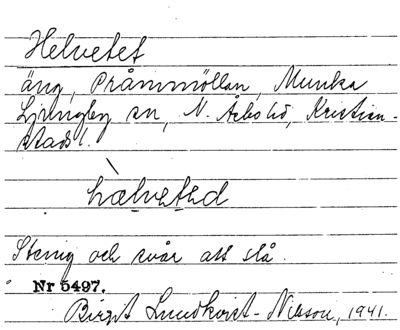 Helvetet
äng, Pråmmöllan, Munka
Ljungby sn, N. Åsbo hd, Kristian-
stads l.
hælvetəd
Stenig och svår att slå.
Nr 5497.
Birgit Lundkvist-Nilsson, 1941.